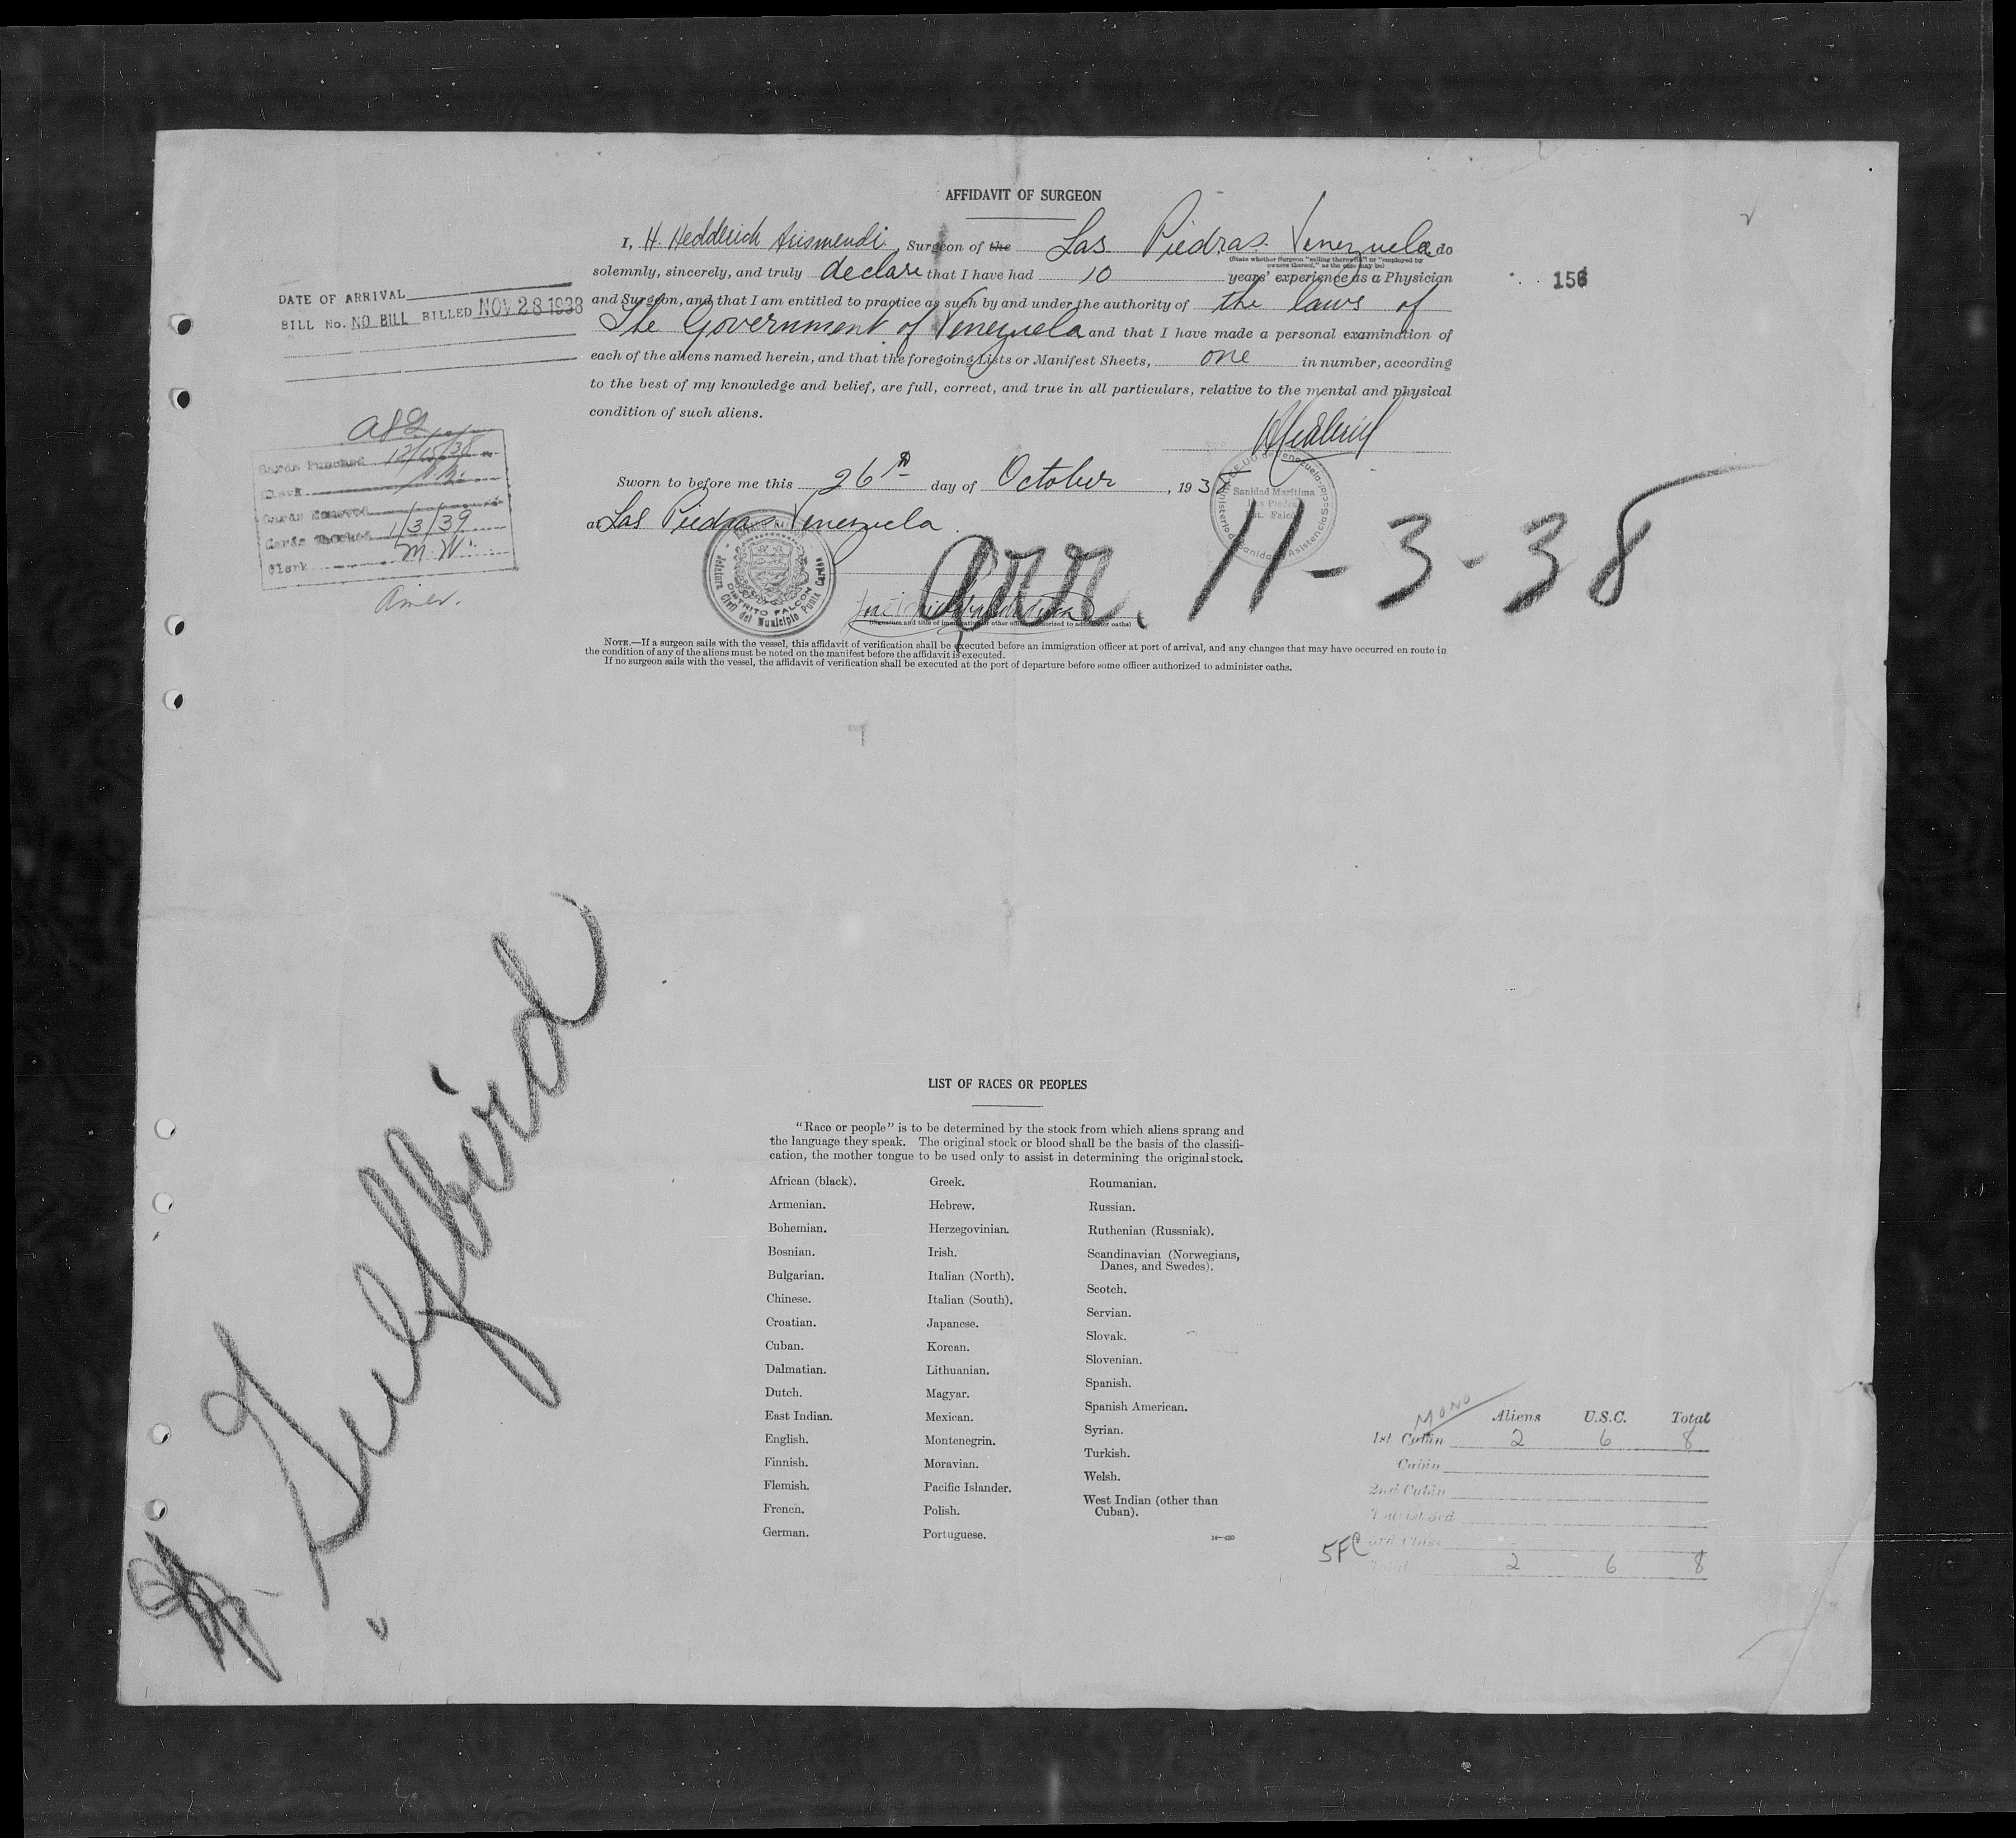 AFFIDAVIT OF SURGEON
I, H. Hedderich Arismendi, Surgeon of the Las Piedras. Venezuela do
(State whether Surgeon "sailing therewith" or "employed by
owners thereof," as the case may be)
solemnly, sincerely, and truly declare that I have had 10 years' experience as a Physician
and Surgeon, and that I am entitled to practice as such by and under the authority of the laws of
The Government of Venezuela and that I have made a personal examination of
each of the aliens named herein, and that the foregoing Lists or Manifest Sheets, one in number, according
to the best of my knowledge and belief, are full, correct, and true in all particulars, relative to the mental and physical
condition of such aliens.
Sworn to before me this 26th day of October, 1938
at Las Piedras Venezuela.
arr. 11-3-38
(Signature and title of immigration or other officer authorized to administer oaths)
NOTE.—If a surgeon sails with the vessel, this affidavit of verification shall be executed before an immigration officer at port of arrival, and any changes that may have occurred en route in
the condition of any of the aliens must be noted on the manifest before the affidavit is executed.
If no surgeon sails with the vessel, the affidavit of verification shall be executed at the port of departure before some officer authorized to administer oaths.
DATE OF ARRIVAL
BILL No. NO BILL BILLED NOV 28 1938
Cards Punched 12/15/38
Clerk
Cards
Cards Checked 1/3/39
Clerk M. W.
Sanidad Marítima
Las Piedras
Est. Falcón
DISTRITO FALCON
Jefatura Civil del Municipio Punta Cardón
Gulfbird
LIST OF RACES OR PEOPLES
"Race or people" is to be determined by the stock from which aliens sprang and
the language they speak. The original stock or blood shall be the basis of the classifi-
cation, the mother tongue to be used only to assist in determining the original stock.
African (black).
Armenian.
Bohemian.
Bosnian.
Bulgarian.
Chinese.
Croatian.
Cuban.
Dalmatian.
Dutch.
East Indian.
English.
Finnish.
Flemish.
French.
German.
Greek.
Hebrew.
Herzegovinian.
Irish.
Italian (North).
Italian (South).
Japanese.
Korean.
Lithuanian.
Magyar.
Mexican.
Montenegrin.
Moravian.
Pacific Islander.
Polish.
Portuguese.
Roumanian.
Russian.
Ruthenian (Russniak).
Scandinavian (Norwegians,
Danes, and Swedes).
Scotch.
Servian.
Slovak.
Slovenian.
Spanish.
Spanish American.
Syrian.
Turkish.
Welsh.
West Indian (other than
Cuban).
MONO
Aliens U.S.C. Total
1st Cabin 2 6 8
Cabin
2nd Cabin
Tourist 3rd
5FC 3rd Class
Total 2 6 8